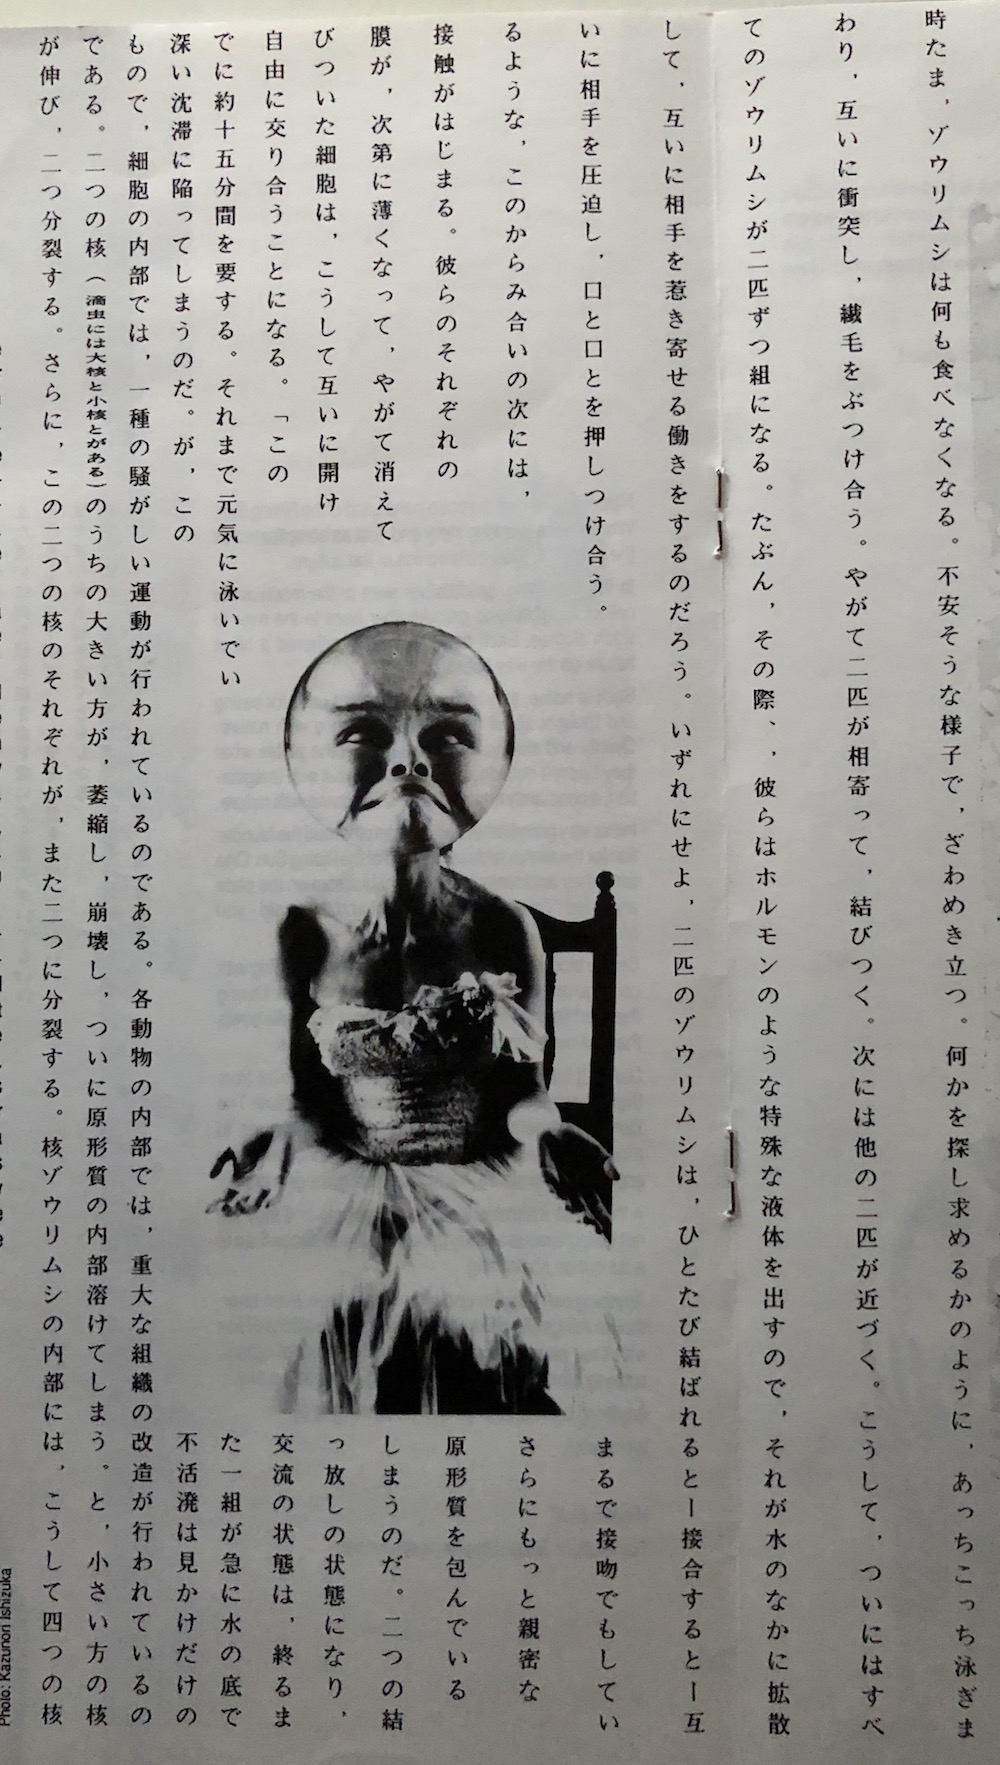 時たま，ゾウリムシは何も食べなくなる。不安そうな様子で，ざわめき立つ。何かを探し求めるかのように，あっちこっち泳ぎま
わり，互いに衝突し，繊毛をぶつけ合う。やがて二匹が相寄って，結びつく。次には他の二匹が近づく。こうして，ついにはすべ
てのゾウリムシが二匹ずつ組になる。たぶん，その際、，彼らはホルモンのような特殊な液体を出すので，それが水のなかに拡散
して，互いに相手を惹き寄せる働きをするのだろう。いずれにせよ，二匹のゾウリムシは，ひとたび結ばれるとー接合するとー互
いに相手を圧迫し，口と口とを押しつけ合う。まるで接吻でもしてい
るような，このからみ合いの次には，さらにもっと親密な
接触がはじまる。彼らのそれぞれの原形質を包んでいる
膜が，次第に薄くなって，やがて消えてしまうのだ。二つの結
びついた細胞は，こうして互いに開けっ放しの状態になり，
自由に交り合うことになる。「この交流の状態は，終るま
でに約十五分間を要する。それまで元気に泳いでいた一組が急に水の底で
深い沈滞に陥ってしまうのだ。が，この不活溌は見かけだけの
もので，細胞の内部では，一種の騒がしい運動が行われているのである。各動物の内部では，重大な組織の改造が行われているの
である。二つの核（滴虫には大核と小核とがある）のうちの大きい方が，萎縮し，崩壊し，ついに原形質の内部溶けてしまう。と，小さい方の核
が伸び，二つ分裂する。さらに，この二つの核のそれぞれが，また二つに分裂する。核ゾウリムシの内部には，こうして四つの核
Photo: Kazunori Ishizuka